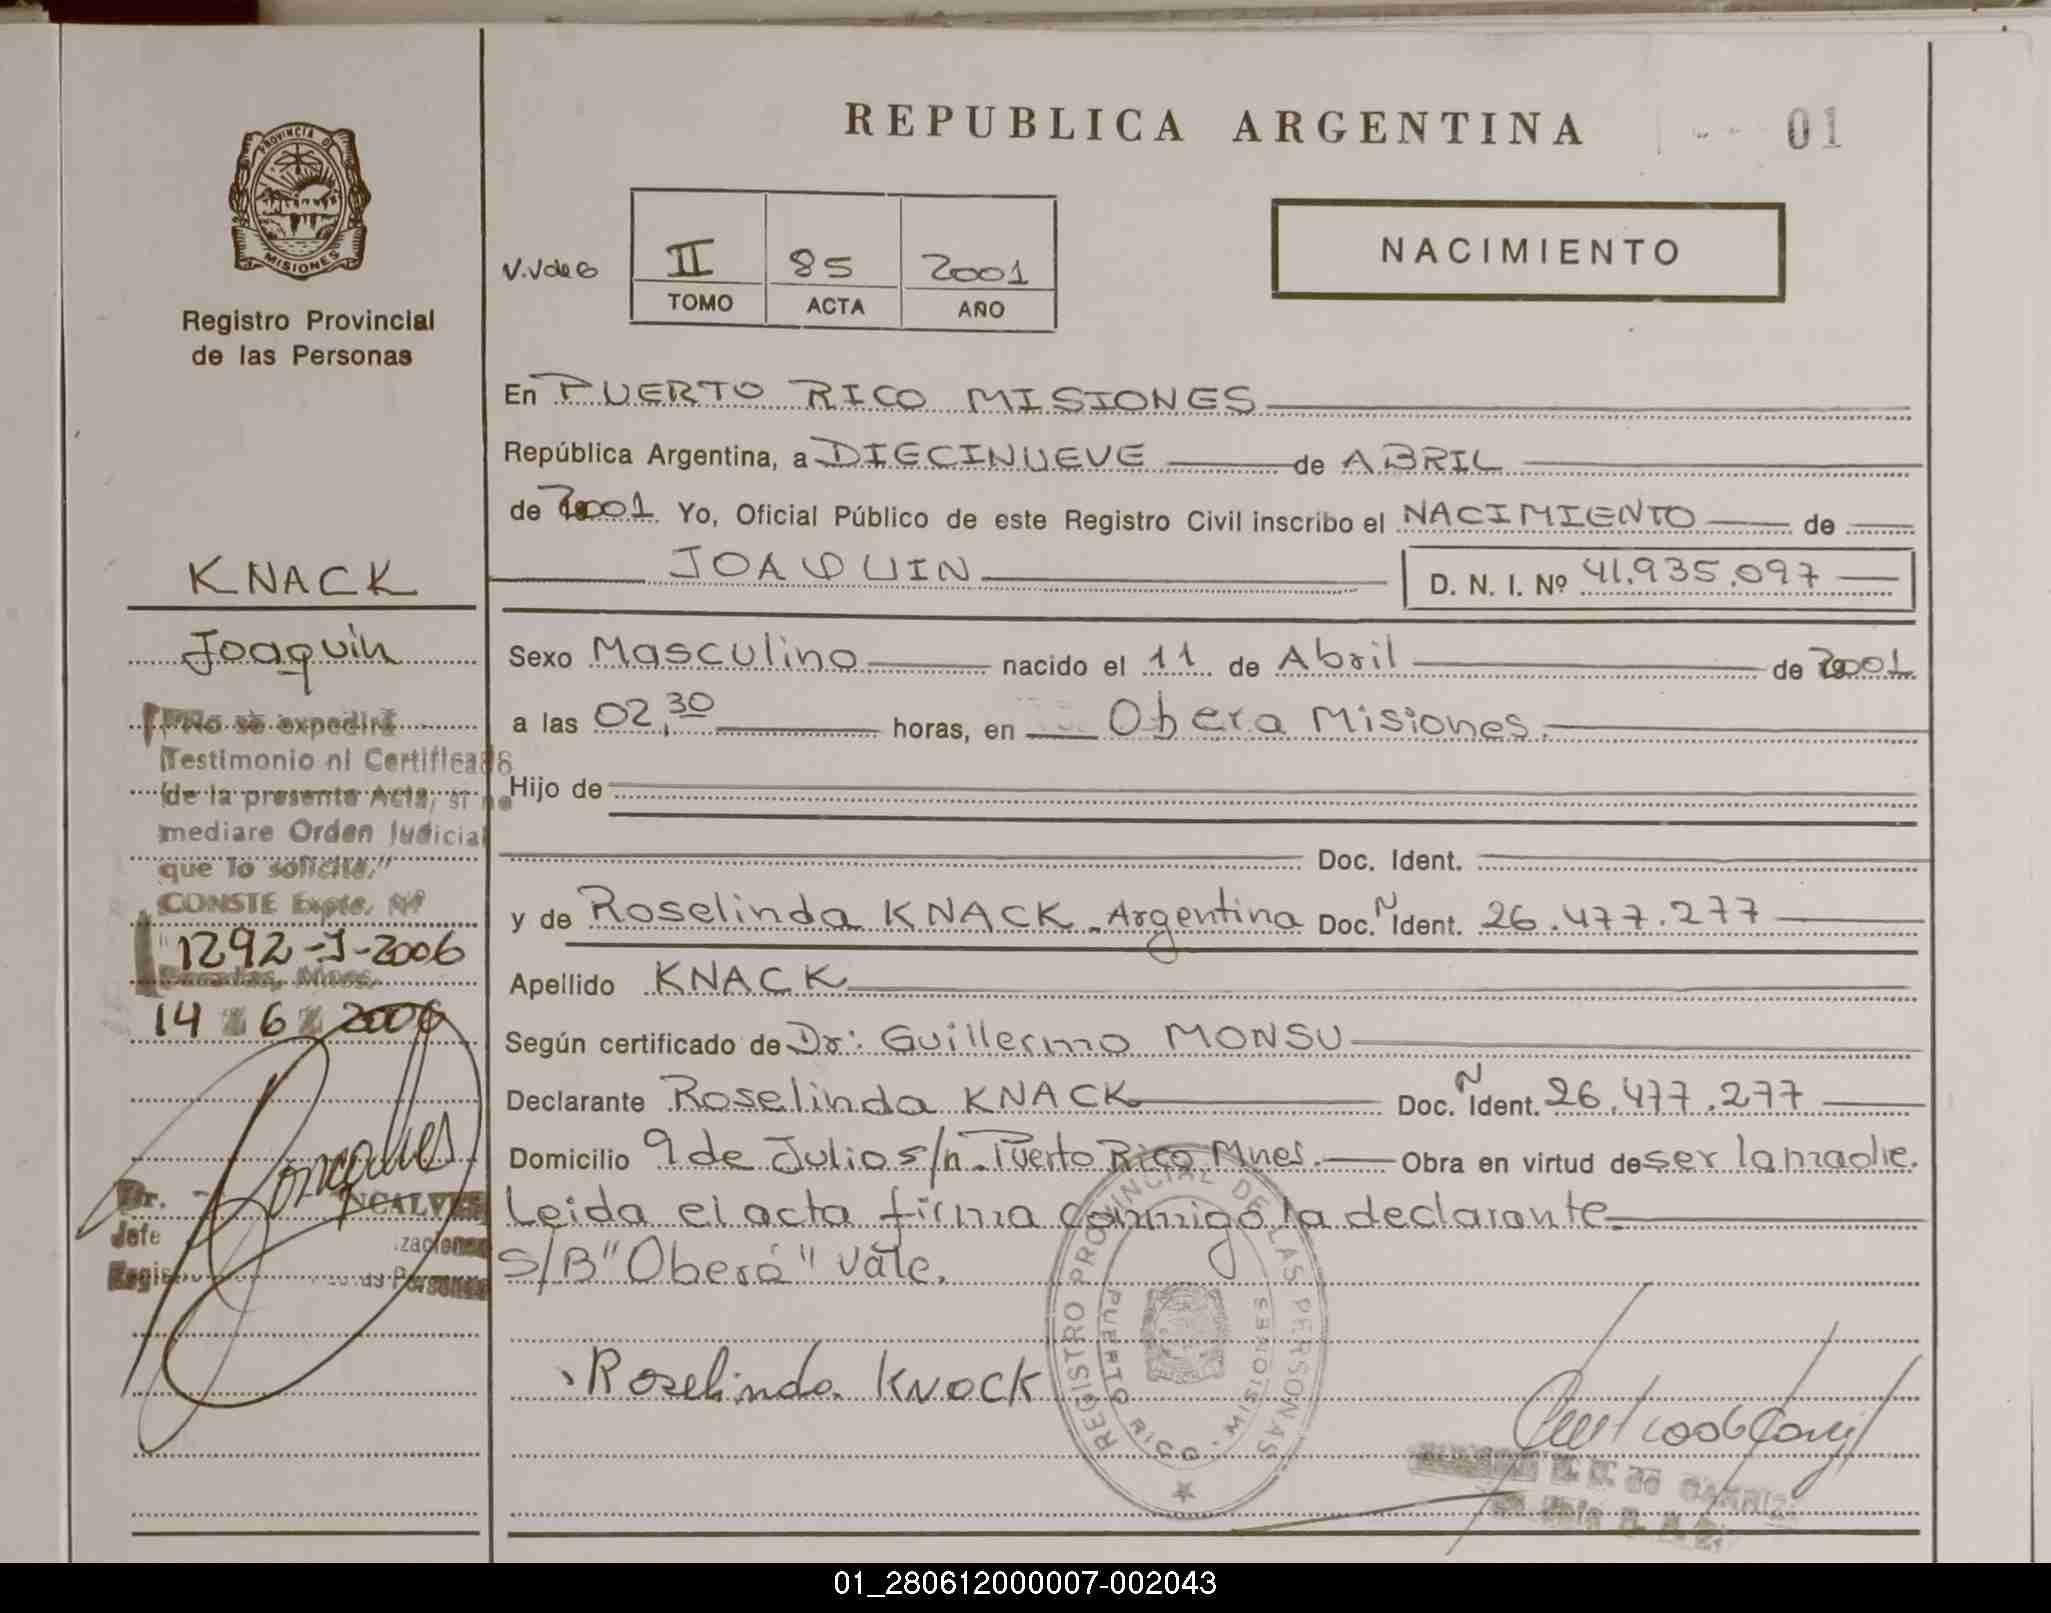 REPUBLICA ARGENTINA
01
PROVINCIA DE
MISIONES
Registro Provincial
de las Personas
II 85 2001
TOMO ACTA AÑO
NACIMIENTO
En PUERTO RICO MISIONES
República Argentina, a DIECINUEVE de ABRIL
de 2001 Yo, Oficial Público de este Registro Civil inscribo el NACIMIENTO de
JOAQUIN D. N. I. Nº 41.935.097
Sexo Masculino nacido el 11 de Abril de 2001
a las 02,30 horas, en Obera Misiones.
Hijo de
Doc. Ident.
y de Roselinda KNACK. Argentina Doc. N Ident. 26.477.277
Apellido KNACK
Según certificado de Dr: Guillermo MONSU
Declarante Roselinda KNACK Doc. N Ident. 26.477.277
Domicilio 9 de Julio s/n. Puerto Rico Mnes. Obra en virtud de ser la madre.
Leida el acta firma conmigo la declarante.
S/B "Oberá" vale.
Roselinda KNACK
REGISTRO PROVINCIAL DE LAS PERSONAS
PUERTO RICO - MISIONES
KNACK
Joaquin
"No se expedirá
Testimonio ni Certificado
de la presente Acta, si no
mediare Orden Judicial
que lo solicite."
CONSTE Expte. Nº
1292-J-2006
Posadas, Mnes.
14 6 2006
Dr.
Jefe
01_280612000007-002043